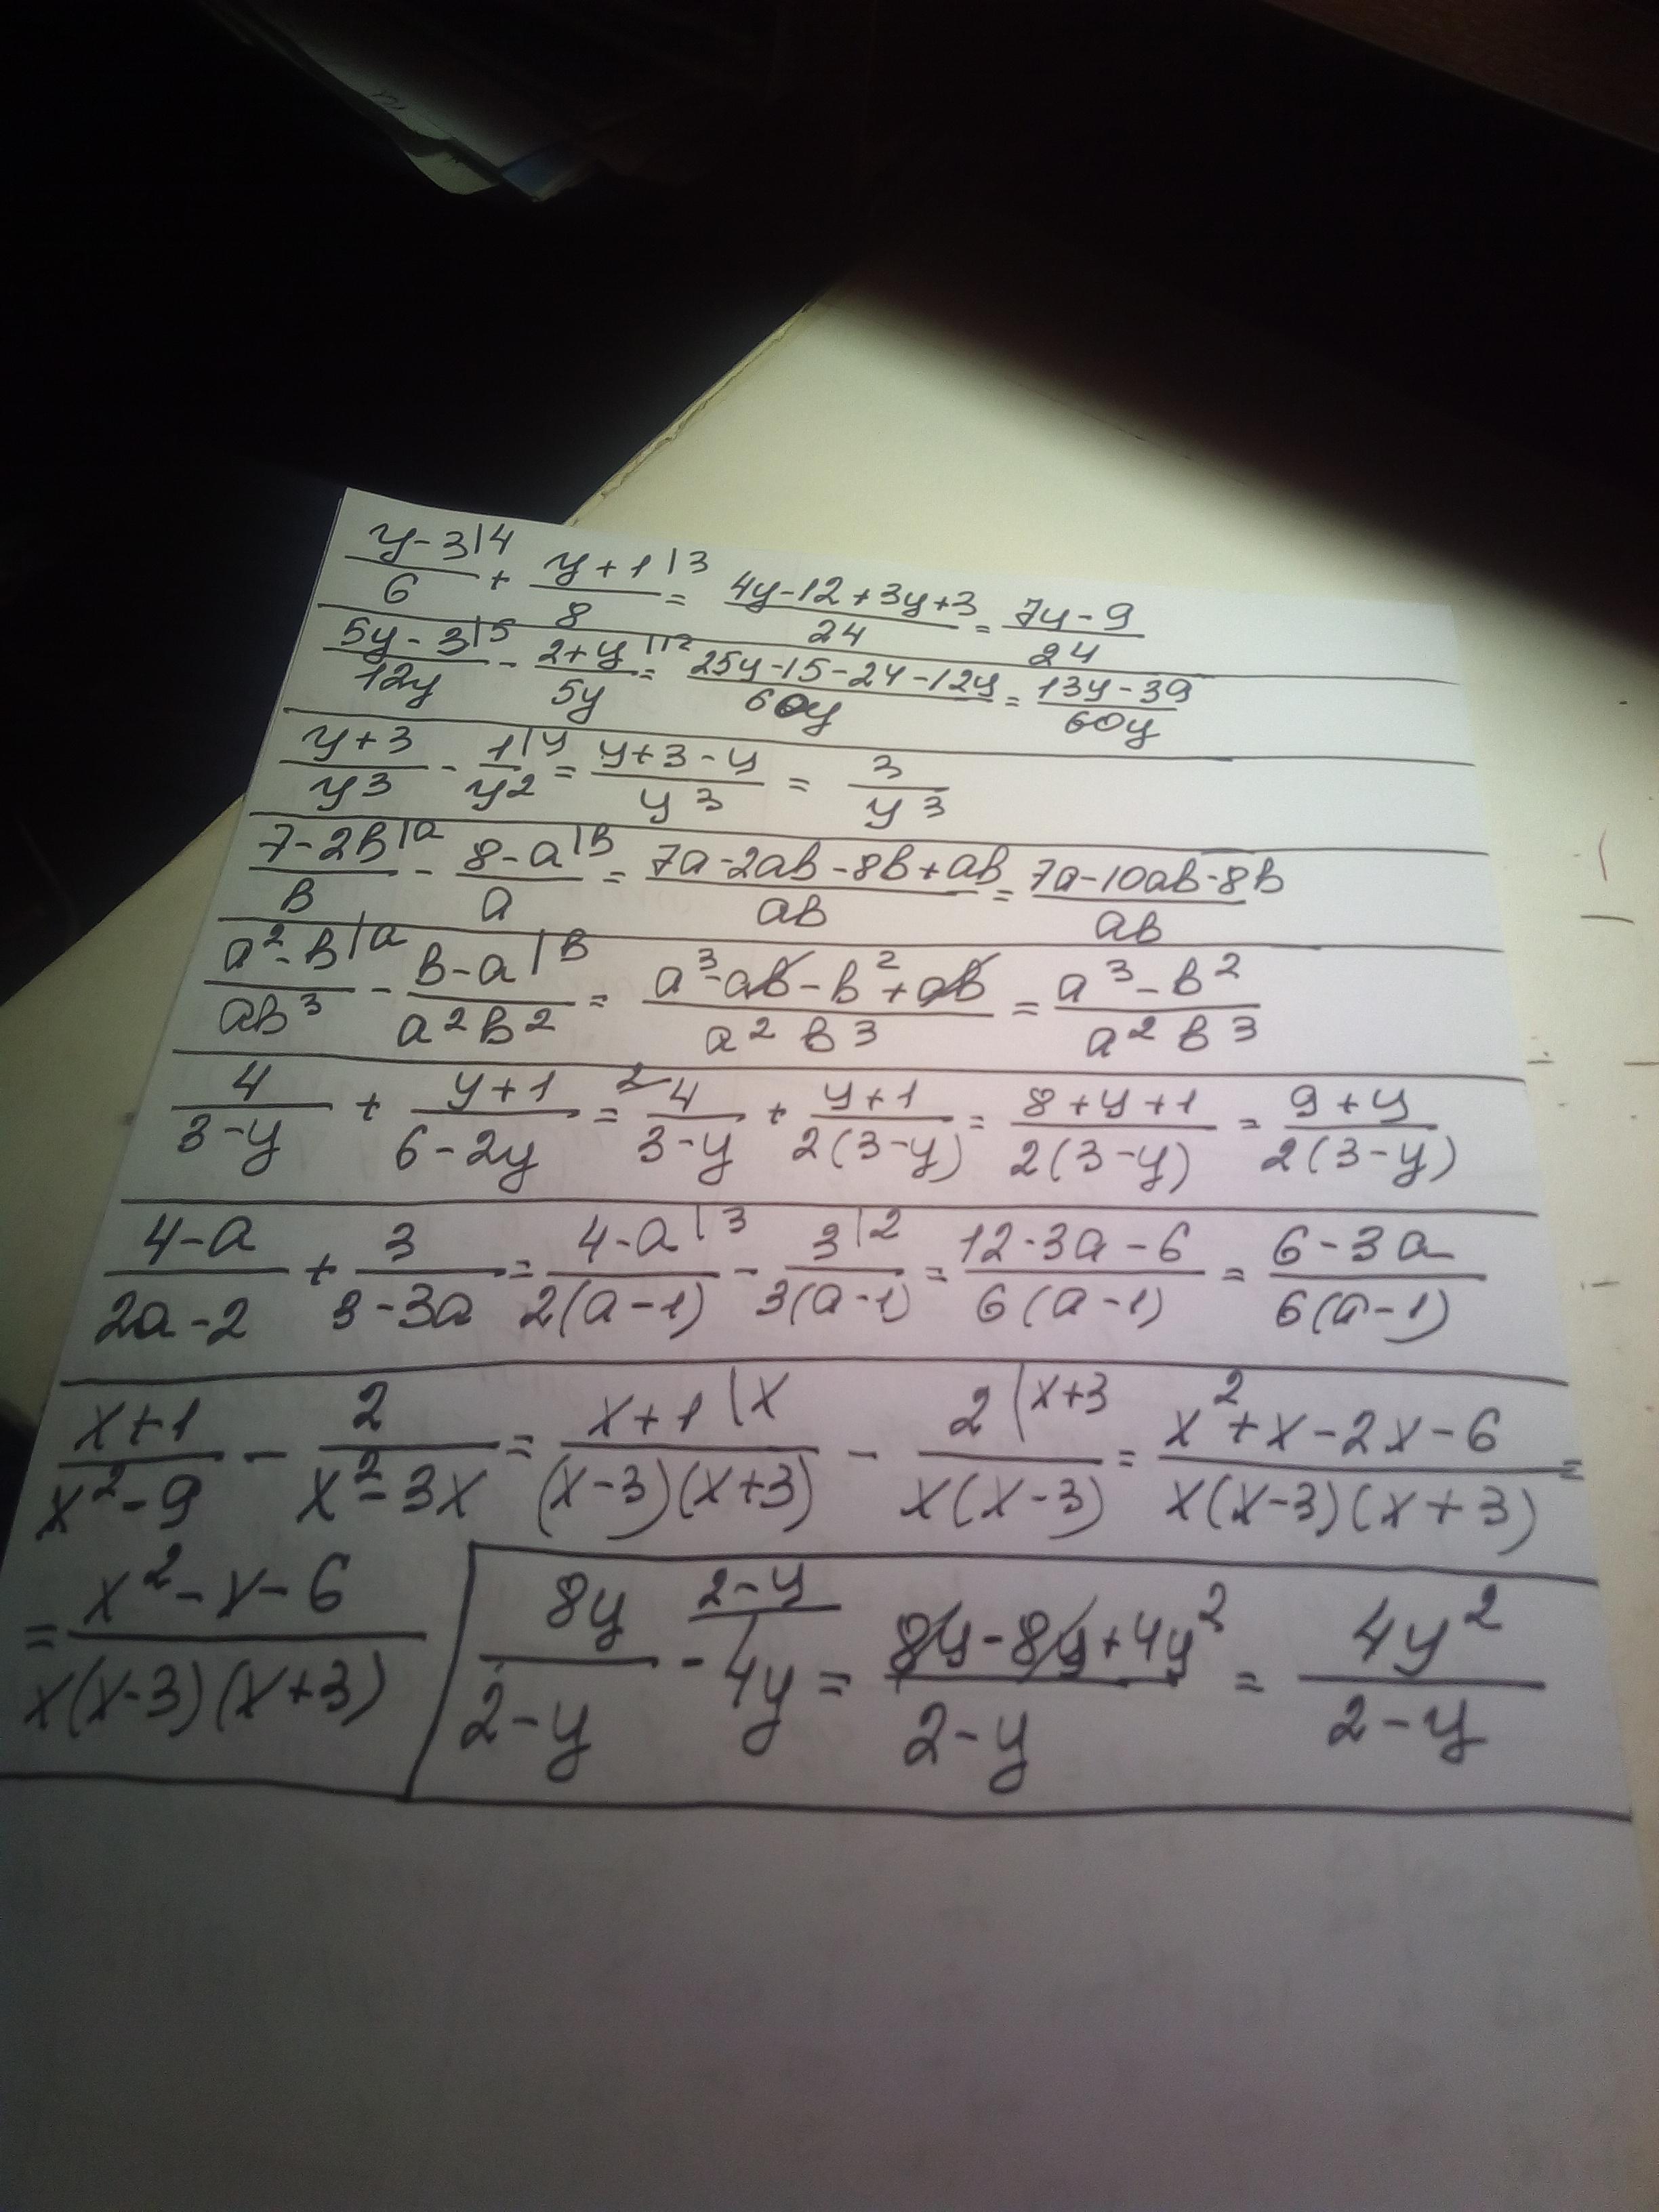 y-3|4/6 + y+1|3/8 = 4y-12+3y+3/24 = 7y-9/24
5y-3|5/12y - 2+y|12/5y = 25y-15-24-12y/60y = 13y-39/60y
y+3/y3 - 1|y/y2 = y+3-y/y3 = 3/y3
7-2b|a/b - 8-a|b/a = 7a-2ab-8b+ab/ab = 7a-10ab-8b/ab
a²-b|a/ab³ - b-a|b/a²b² = a³-ab-b²+ab/a²b³ = a³-b²/a²b³
4/3-y + y+1/6-2y = 2 4/3-y + y+1/2(3-y) = 8+y+1/2(3-y) = 9+y/2(3-y)
4-a/2a-2 + 3/3-3a = 4-a|3/2(a-1) - 3|2/3(a-1) = 12-3a-6/6(a-1) = 6-3a/6(a-1)
x+1/x²-9 - 2/x²-3x = x+1|x/(x-3)(x+3) - 2|x+3/x(x-3) = x²+x-2x-6/x(x-3)(x+3) =
= x²-x-6/x(x-3)(x+3)
8y/2-y - 2-y/4y = 8y-8y+4y²/2-y = 4y²/2-y